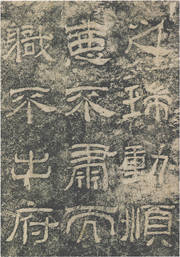 之瑞動順
惡不肅而
職不出府